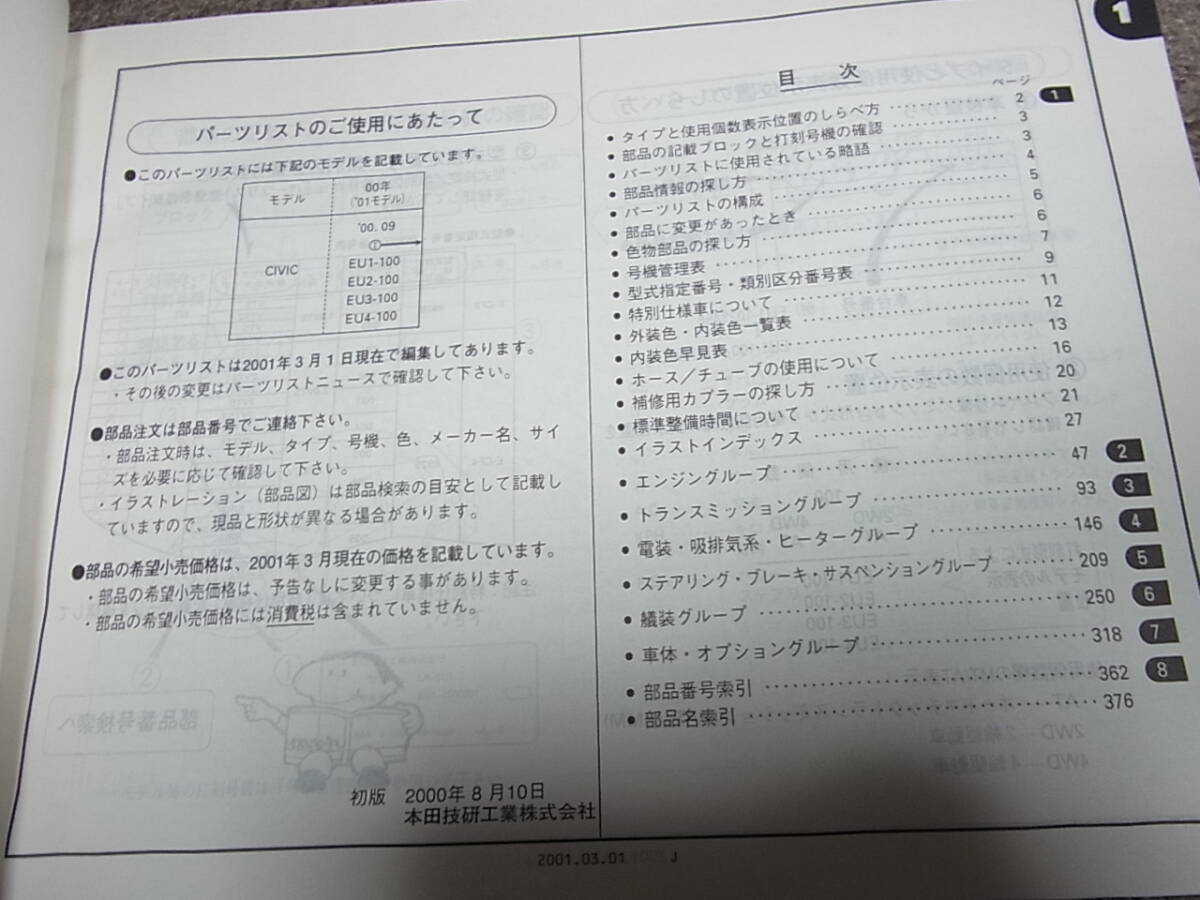 1
パーツリストのご使用にあたって
●このパーツリストには下記のモデルを記載しています。
モデル
00年
('01モデル)
CIVIC
'00. 09
①
EU1-100
EU2-100
EU3-100
EU4-100
●このパーツリストは2001年3月1日現在で編集してあります。
・その後の変更はパーツリストニュースで確認して下さい。
●部品注文は部品番号でご連絡下さい。
・部品注文時は、モデル、タイプ、号機、色、メーカー名、サイ
ズを必要に応じて確認して下さい。
・イラストレーション(部品図)は部品検索の目安として記載し
ていますので、現品と形状が異なる場合があります。
●部品の希望小売価格は、2001年3月現在の価格を記載しています。
・部品の希望小売価格は、予告なしに変更する事があります。
・部品の希望小売価格には消費税は含まれていません。
初版 2000年8月10日
本田技研工業株式会社
目 次
ページ
● タイプと使用個数表示位置のしらべ方 ········ 2 1
● 部品の記載ブロックと打刻号機の確認 ········ 3
● パーツリストに使用されている略語 ········ 3
● 部品情報の探し方 ········ 4
● パーツリストの構成 ········ 5
● 部品に変更があったとき ········ 6
● 色物部品の探し方 ········ 6
● 号機管理表 ········ 7
● 型式指定番号・類別区分番号表 ········ 9
● 特別仕様車について ········ 11
● 外装色・内装色一覧表 ········ 12
● 内装色早見表 ········ 13
● ホース/チューブの使用について ········ 16
● 補修用カプラーの探し方 ········ 20
● 標準整備時間について ········ 21
● イラストインデックス ········ 27
● エンジングループ ········ 47 2
● トランスミッショングループ ········ 93 3
● 電装・吸排気系・ヒーターグループ ········ 146 4
● ステアリング・ブレーキ・サスペンショングループ ········ 209 5
● 艤装グループ ········ 250 6
● 車体・オプショングループ ········ 318 7
● 部品番号索引 ········ 362 8
● 部品名索引 ········ 376
2001.03.01 J